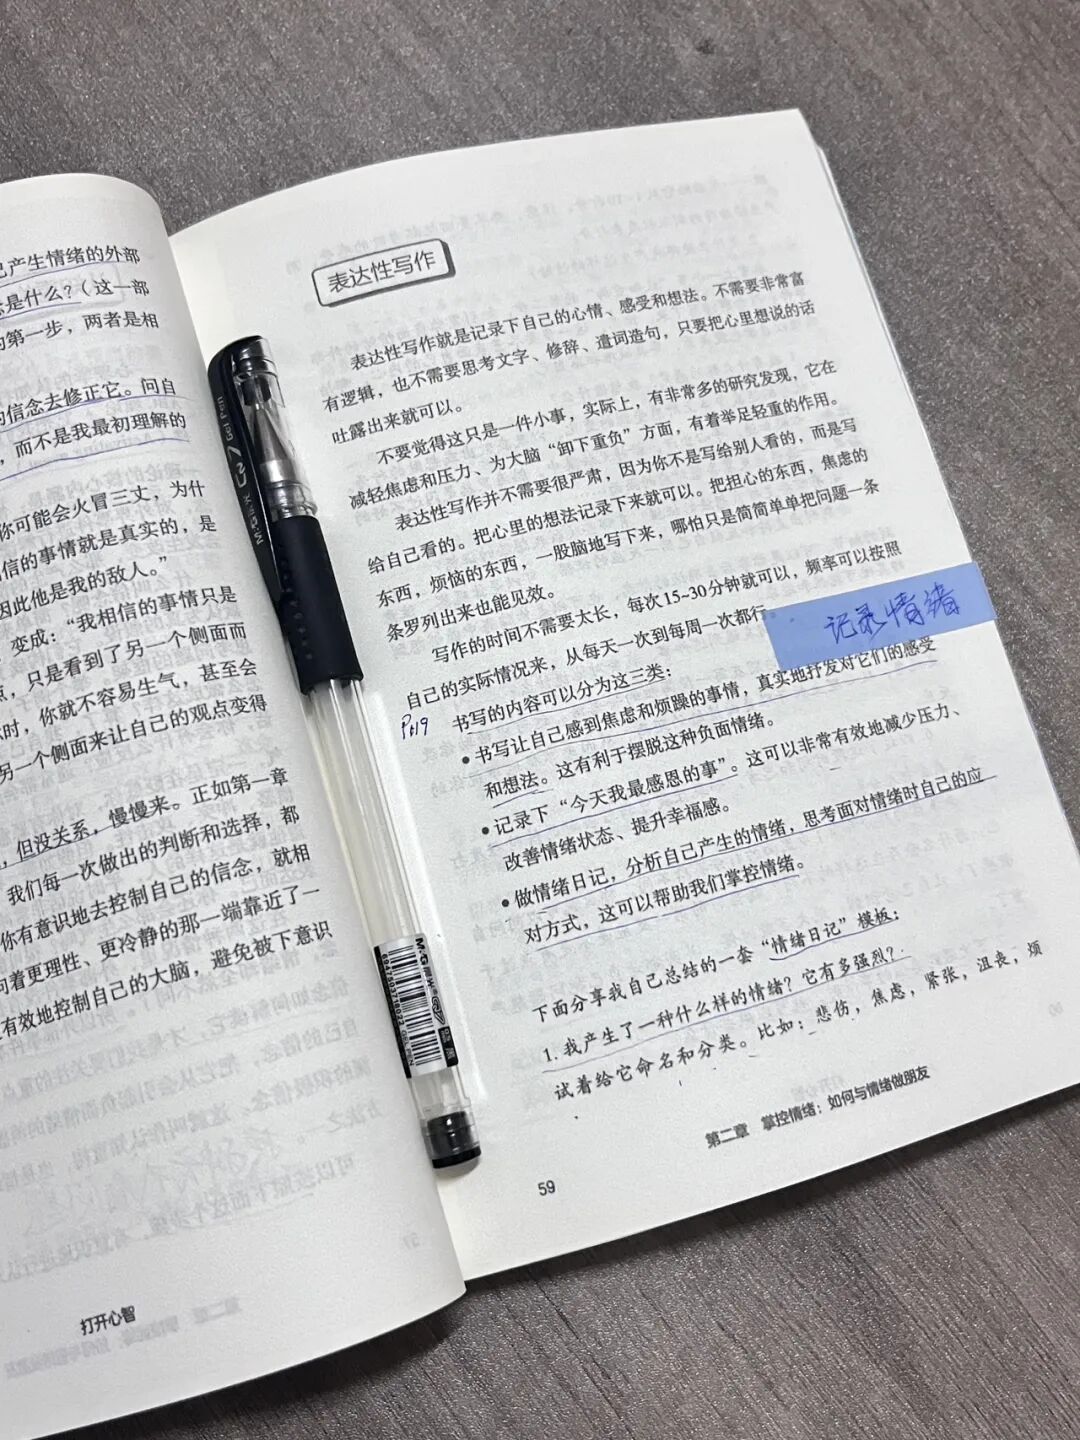 己产生情绪的外部
念是什么?(这一部
的第一步，两者是相
的信念去修正它。问自
，而不是我最初理解的
你可能会火冒三丈，为什
相信的事情就是真实的，是
因此他是我的敌人。”
变成：“我相信的事情只是
点，只是看到了另一个侧面而
时，你就不容易生气，甚至会
另一个侧面来让自己的观点变得
，但没关系，慢慢来。正如第一章
我们每一次做出的判断和选择，都
你有意识地去控制自己的信念，就相
向着更理性、更冷静的那一端靠近了一
更有效地控制自己的大脑，避免被下意识
打开心智
表达性写作
表达性写作就是记录下自己的心情、感受和想法。不需要非常富
有逻辑，也不需要思考文字、修辞、遣词造句，只要把心里想说的话
吐露出来就可以。
不要觉得这只是一件小事，实际上，有非常多的研究发现，它在
减轻焦虑和压力、为大脑“卸下重负”方面，有着举足轻重的作用。
表达性写作并不需要很严肃，因为你不是写给别人看的，而是写
给自己看的。把心里的想法记录下来就可以。把担心的东西，焦虑的
东西，烦恼的东西，一股脑地写下来，哪怕只是简简单单把问题一条
条罗列出来也能见效。
写作的时间不需要太长，每次15~30分钟就可以，频率可以按照
自己的实际情况来，从每天一次到每周一次都行。
记录情绪
书写的内容可以分为这三类：
• 书写让自己感到焦虑和烦躁的事情，真实地抒发对它们的感受
和想法。这有利于摆脱这种负面情绪。
• 记录下“今天我最感恩的事”。这可以非常有效地减少压力、
改善情绪状态、提升幸福感。
• 做情绪日记，分析自己产生的情绪，思考面对情绪时自己的应
对方式，这可以帮助我们掌控情绪。
下面分享我自己总结的一套“情绪日记”模板：
1. 我产生了一种什么样的情绪？它有多强烈？
试着给它命名和分类。比如：悲伤，焦虑，紧张，沮丧，烦
第二章 掌控情绪：如何与情绪做朋友
59
M&G
Gel Pen
M&G晨光